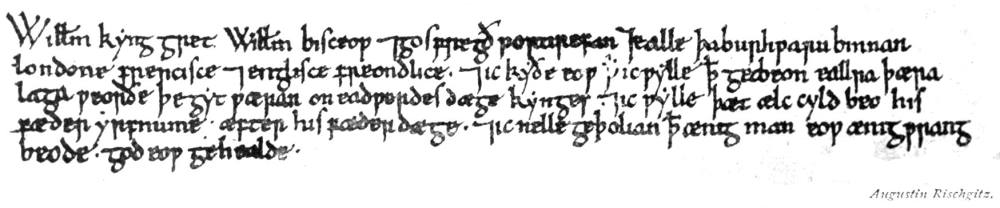 Ƿillm̄ kyng gret Ƿillm̄ bisceop ⁊ gosfregð portirefan ⁊ ealle þa burhƿaru binnan
londone frencisce ⁊ englisce freondlice · ⁊ ic kyðe eoƿ þ ic ƿylle þ get beon eallra þæra
laga ƿeorðe þe gyt ƿæran on eadƿerdes dæge kynges · ⁊ ic ƿylle þæt ælc cyld beo his
fæder yrfnume · æfter his fæder dæge · ⁊ ic nelle geþolian þ ænig man eoƿ ænig ƿrang
beode · god eoƿ gehealde ·
Augustin Rischgitz.